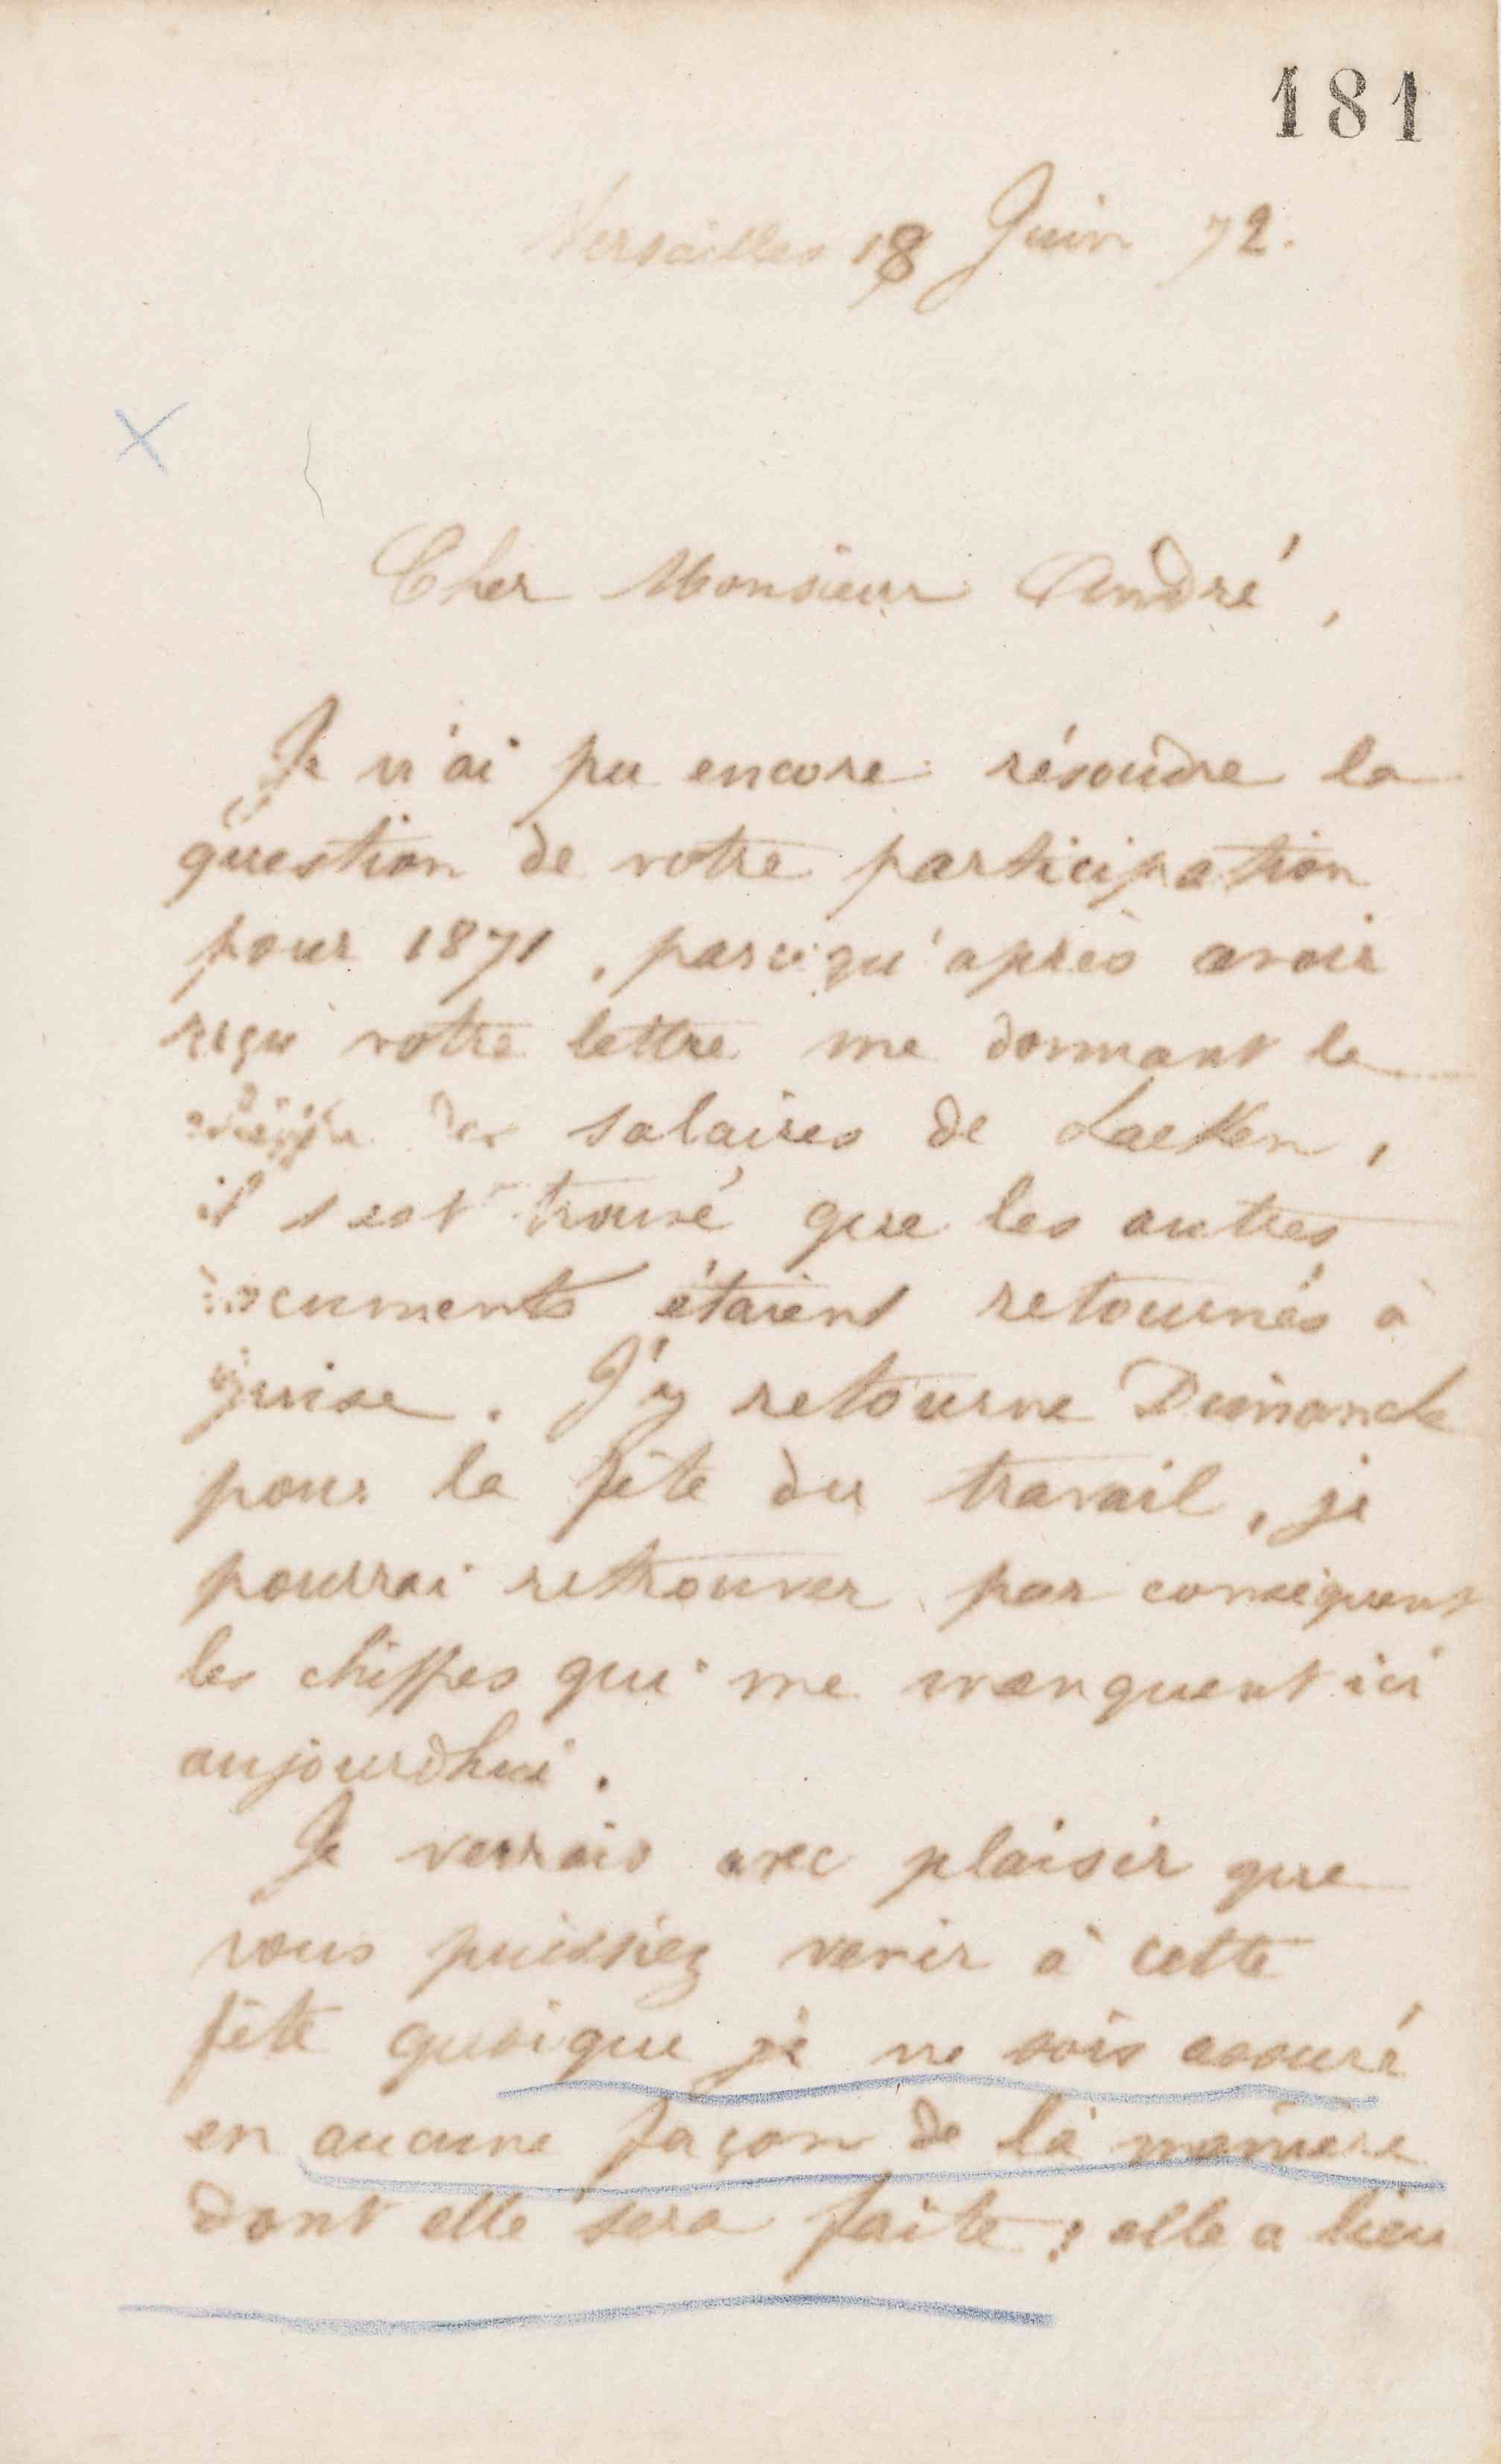 181
Versailles 18 Juin 72.
Cher Monsieur André,
Je n'ai pu encore résoudre la
question de votre participation
pour 1871, parcequ'après avoir
reçu votre lettre me donnant le
chiffre des salaires de Laeken,
il s'est trouvé que les autres
documents étaient retournés à
guise. J'y retourne Dimanche
pour la fête du travail, je
pourrai retrouver par conséquent
les chiffres qui me manquent ici
aujourdhui.
Je verrais avec plaisir que
vous puissiez venir à cette
fête quoique je ne sois assuré
en aucune façon de la manière
dont elle sera faite; elle a lieu